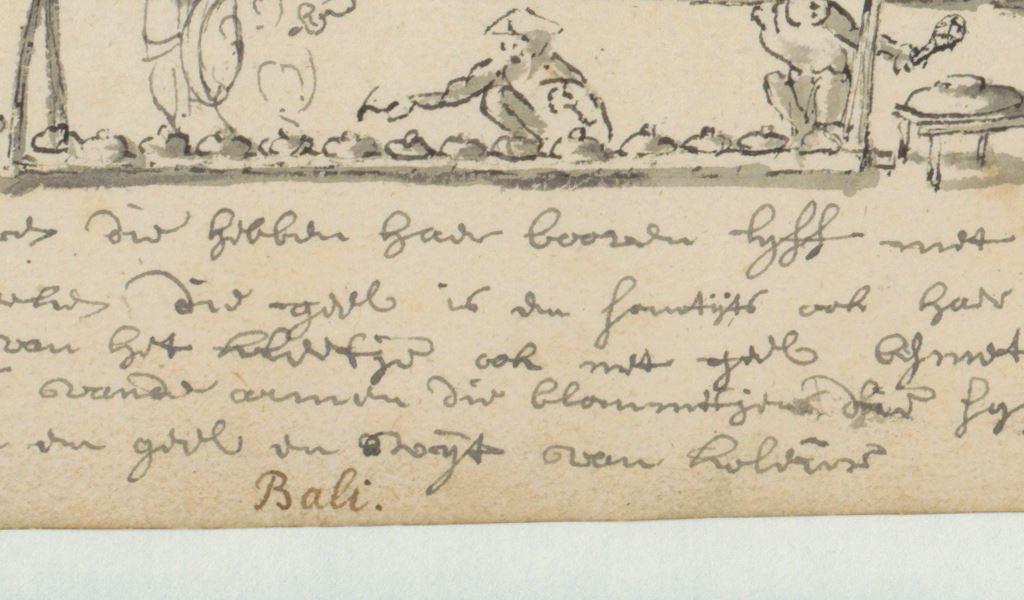 die hebben haer booven lyff met
die geel is en somtijts ook haer
van het kleetje ook met geel besmet
vande armen die blommetjens
en geel en wyt van koleure
Bali.